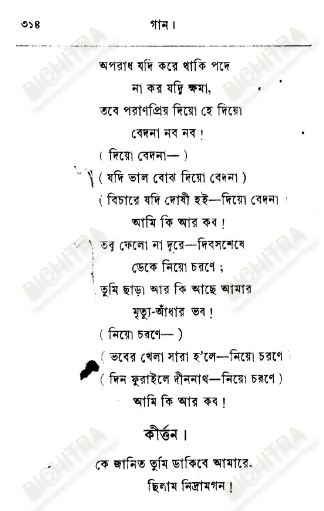 ৩১৪ গান।
অপরাধ যদি করে থাকি পদে
না কর যদি ক্ষমা,
তবে পরাণপ্রিয় দিয়ো হে দিয়ো
বেদনা নব নব!
( দিয়ো বেদনা— )
( যদি ভাল বোঝ দিয়ো বেদনা )
( বিচারে যদি দোষী হই—দিয়ো বেদনা )
আমি কি আর কব!
তবু ফেলো না দূরে—দিবসশেষে
ডেকে নিয়ো চরণে;
তুমি ছাড়া আর কি আছে আমার
মৃত্যু-আঁধার ভব!
( নিয়ো চরণে— )
( ভবের খেলা সারা হ'লে—নিয়ো চরণে )
( দিন ফুরাইলে দীননাথ—নিয়ো চরণে )
আমি কি আর কব!
কীর্ত্তন।
কে জানিত তুমি ডাকিবে আমারে,
ছিলাম নিদ্রামগন!
BICHITRA
BICHITRA
BICHITRA
BICHITRA
BICHITRA
BICHITRA